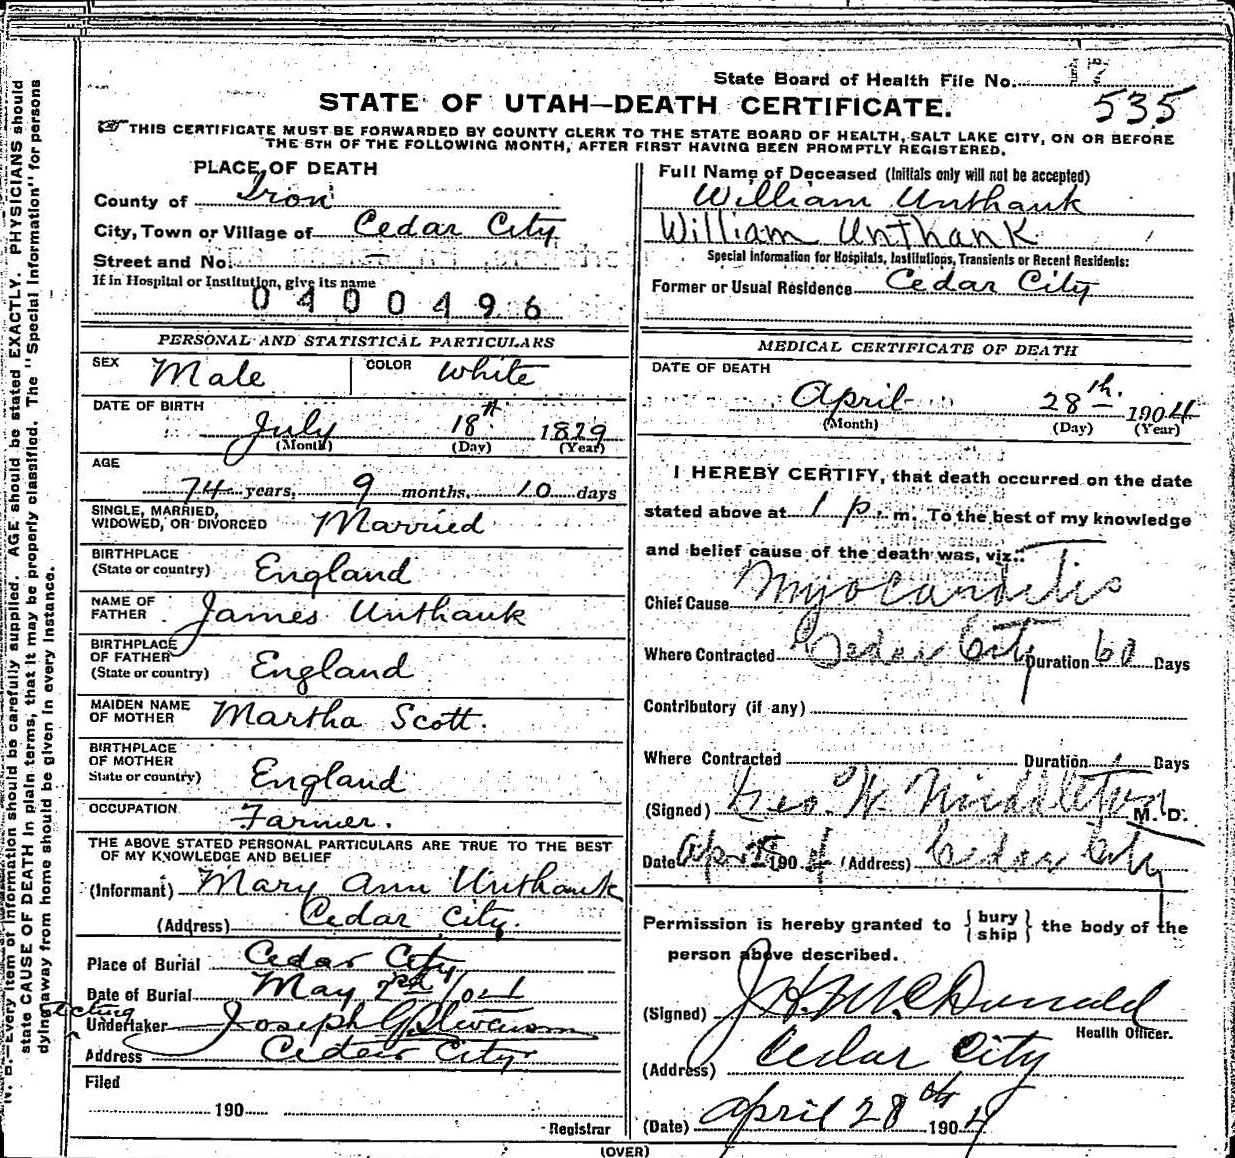 State Board of Health File No. 17
STATE OF UTAH—DEATH CERTIFICATE.
535
THIS CERTIFICATE MUST BE FORWARDED BY COUNTY CLERK TO THE STATE BOARD OF HEALTH, SALT LAKE CITY, ON OR BEFORE
THE 5TH OF THE FOLLOWING MONTH, AFTER FIRST HAVING BEEN PROMPTLY REGISTERED.
PLACE OF DEATH
County of Iron
City, Town or Village of Cedar City
Street and No.
If in Hospital or Institution, give its name
0400496
Full Name of Deceased (Initials only will not be accepted)
William Unthank
William Unthank
Special Information for Hospitals, Institutions, Transients or Recent Residents:
Former or Usual Residence Cedar City
PERSONAL AND STATISTICAL PARTICULARS
SEX Male COLOR White
DATE OF BIRTH
July 18th 1829
(Month) (Day) (Year)
AGE
74 years, 9 months, 10 days
SINGLE, MARRIED,
WIDOWED, OR DIVORCED Married
BIRTHPLACE
(State or country) England
NAME OF
FATHER James Unthank
BIRTHPLACE
OF FATHER
(State or country) England
MAIDEN NAME
OF MOTHER Martha Scott.
BIRTHPLACE
OF MOTHER
State or country) England
OCCUPATION Farmer.
THE ABOVE STATED PERSONAL PARTICULARS ARE TRUE TO THE BEST
OF MY KNOWLEDGE AND BELIEF
(Informant) Mary Ann Unthank
(Address) Cedar City.
Place of Burial Cedar City
Date of Burial May
acting
Undertaker Joseph
Address Cedar City
Filed
190
Registrar
MEDICAL CERTIFICATE OF DEATH
DATE OF DEATH
April 28th. 1904
(Month) (Day) (Year)
I HEREBY CERTIFY, that death occurred on the date
stated above at 1 p. m. To the best of my knowledge
and belief cause of the death was, viz:
Chief Cause Myocarditis
Where Contracted Cedar City Duration 60 Days
Contributory (if any)
Where Contracted Duration Days
(Signed) Geo. W. Middleton M. D.
Date Apr 28 1904 (Address) Cedar City
Permission is hereby granted to {bury
ship} the body of the
person above described.
(Signed) J. H. McDonald
Health Officer.
(Address) Cedar City
(Date) April 28th 1904
(OVER)
N. B.—Every item of information should be carefully supplied. AGE should be stated EXACTLY. PHYSICIANS should
state CAUSE OF DEATH in plain terms, that it may be properly classified. The "Special Information" for persons
dying away from home should be given in every instance.